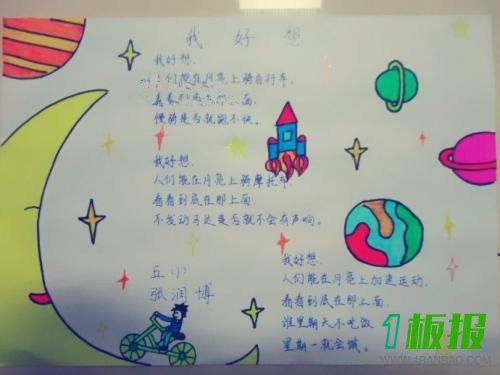 我好想
我好想,
人们能在月亮上骑自行车.
看看到底在那上面.
慢骑是否就跑不快。
我好想.
人们能在月亮上骑摩托车.
看看到底在那上面.
不发动马达是否就不会有声响。
五(1)
张润博
我好想.
人们能在月亮上加速运动.
看看到底在那上面.
谁星期天不吃饭
星期一就会饿。
1板报
www.1BANBAO.COM